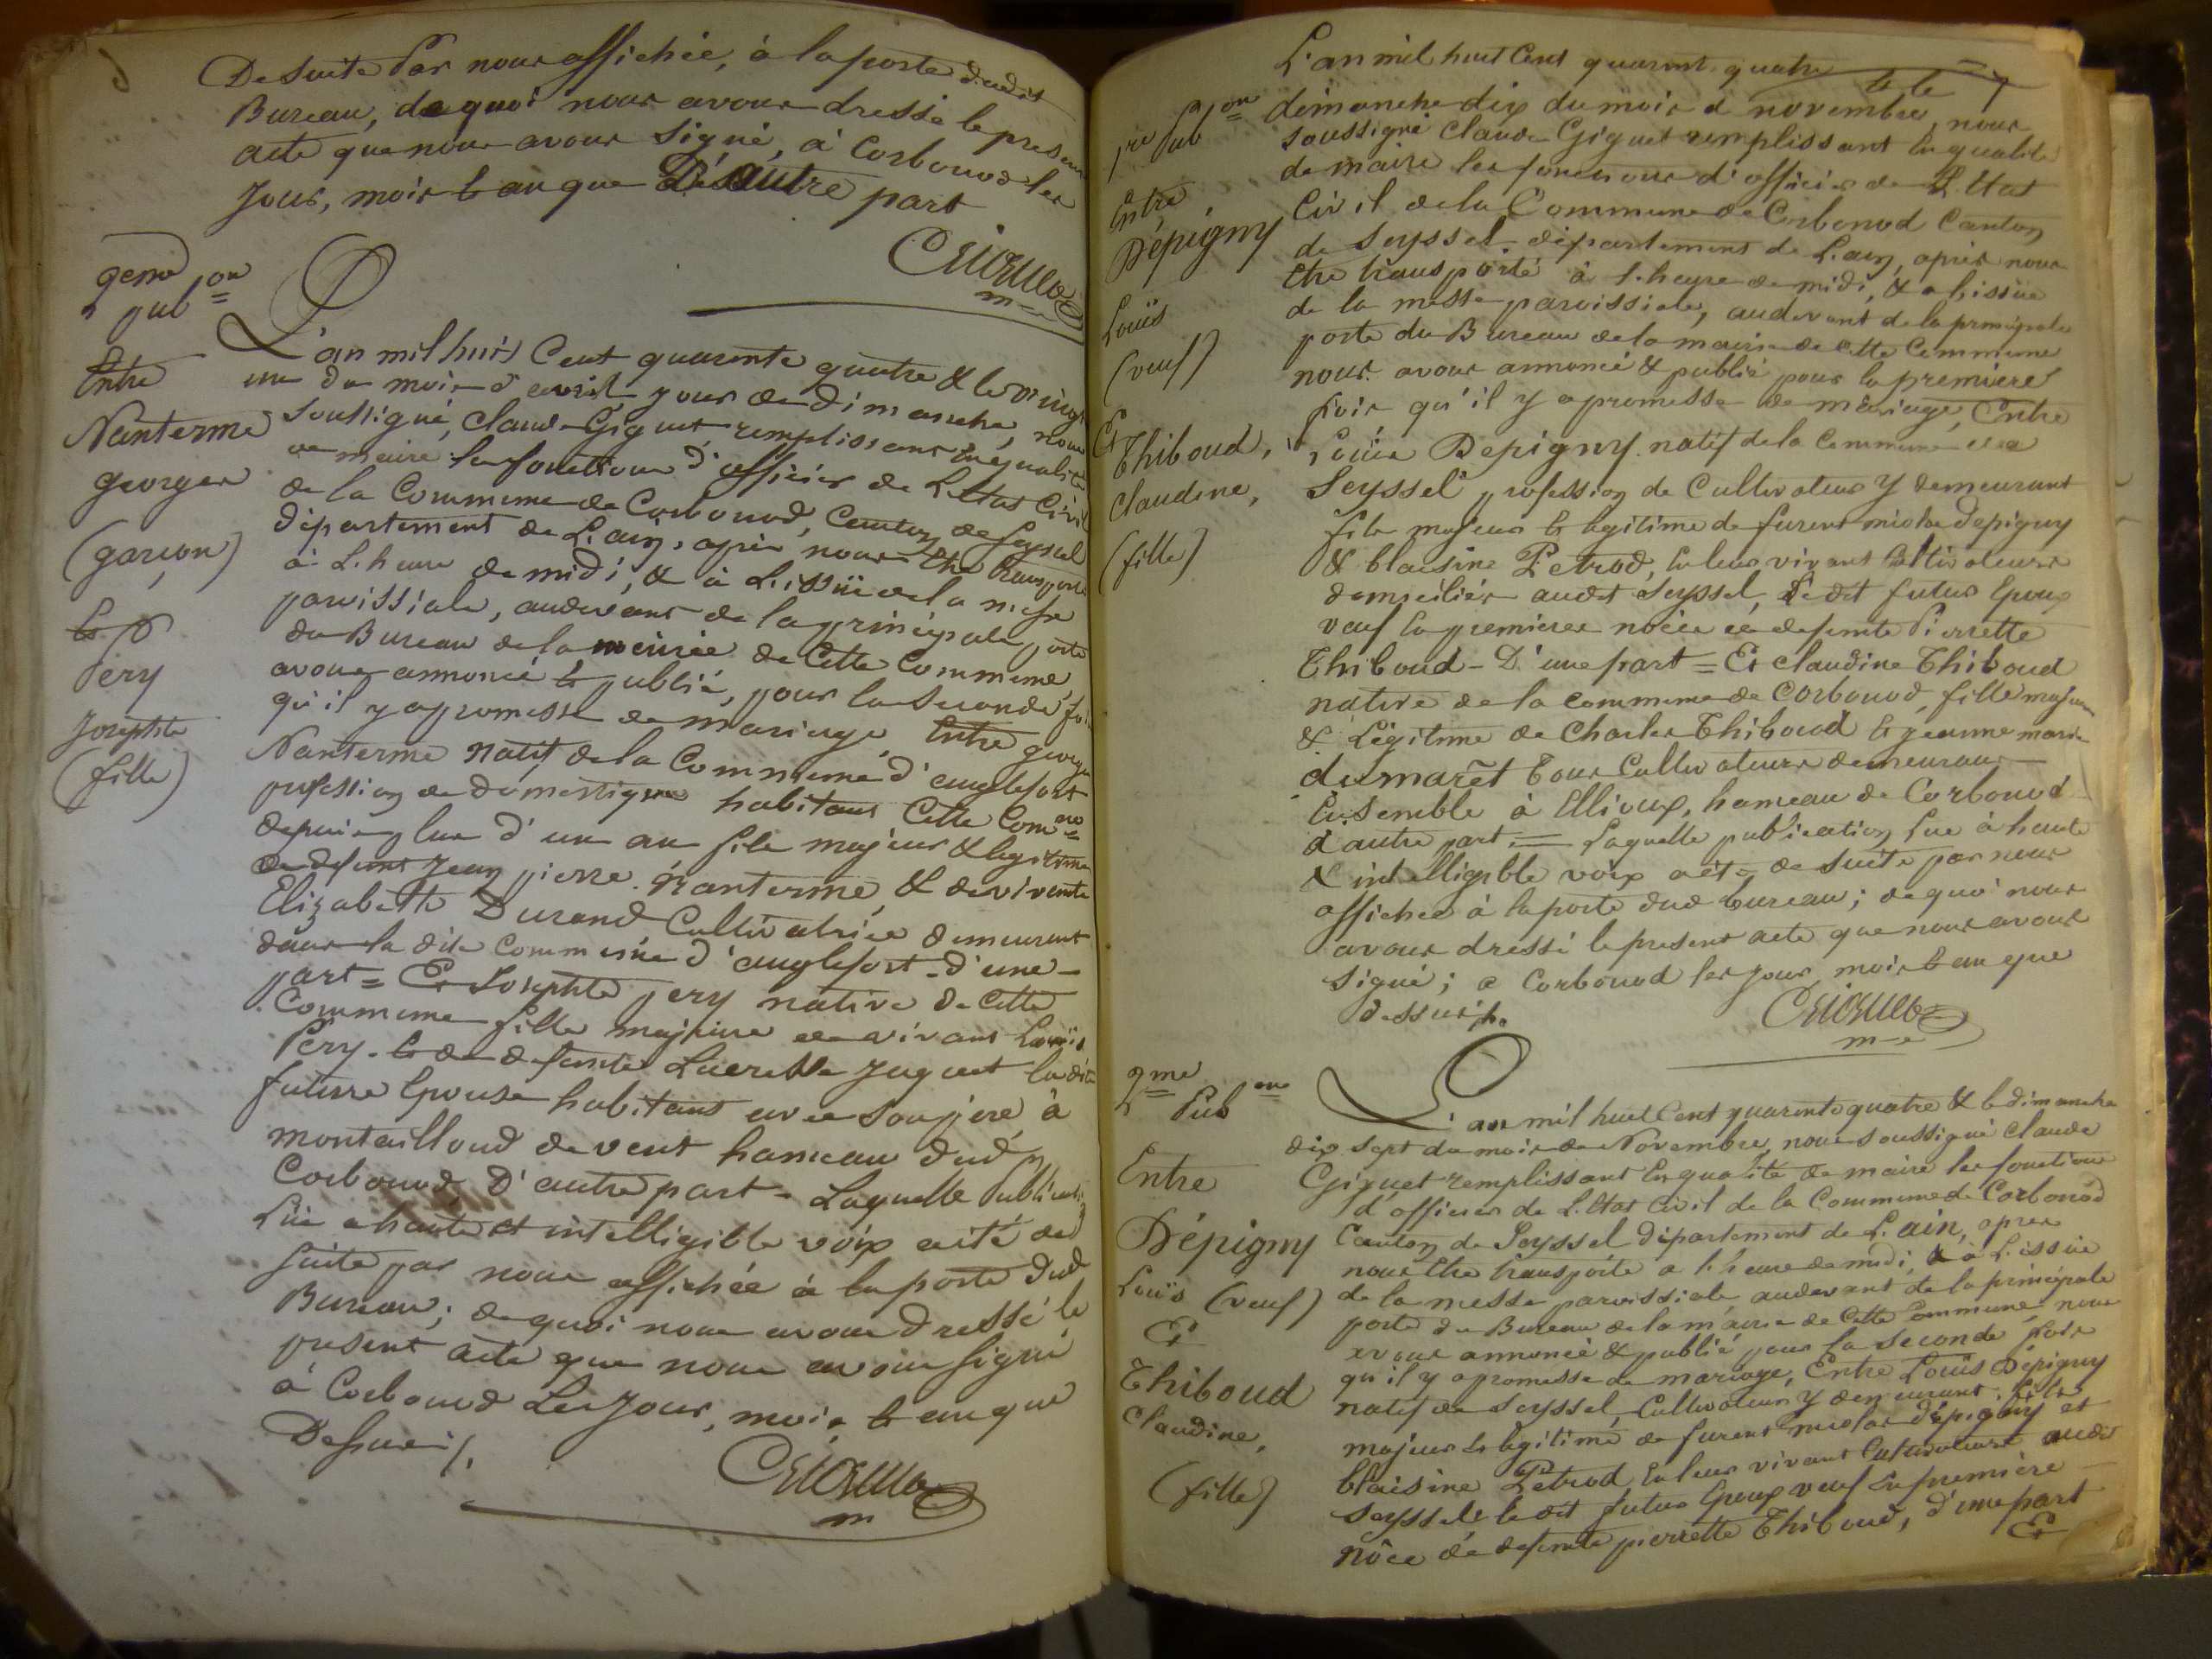 De Suite Par nous affichée, à la porte dudit
Bureau, de quoi nous avons dressé le present
acte que nous avons Signé, à Corbonod les
Jour, mois & an que d'autre part
2eme
pub on
=
Entre
Nanterme
george
(garçon)
Et
péry
Josephte
(fille)
L'an mil huit Cent quarente quatre & le vingt
un du mois d'avril jour de dimanche, nous
Soussigné, Claude Giguet remplissant en qualité
de maire les fonctions d'officier de L'Etat Civil
de la Commune de Corbonod, Canton de Seyssel
département de L'ain, après nous être transporté
à L'heure de midi, & à L'issüe de la messe
paroissiale, audevant de la principale porte
du Bureau de la mairie de Cette Commune,
avons annoncé & publié, pour la Seconde fois
qu'il y a promesse de mariage, Entre george
Nanterme natif de la Commune d'anglefort
profession de domestique habitant Cette Comne
depuis plus d'un an fils majeur & legitime
de defunt Jean pierre Nanterme, & de vivante
Elizabeth Durand Cultivatrice demeurant
dans la dite Commune d'anglefort - d'une -
part = Et Josephte pery native de Cette
Commune fille majeure de vivant Louis
Péry - & de defunte Lucresse Juguet la dite
future Epouse habitant avec son père, à
montailloud devent hameau dud
Corbonod, D'autre part - Laquelle Publication
Lüe a haute et intelligible voix a été de
Suite par nous affichée à la porte dud
Bureau; de quoi nous avons dressé le
present acte que nous avons signé
à Corbonod Les Jour, mois & an que
Dessus /.
m
L'an mil huit Cent quarent quatre & le
1re Pub on
=
Entre
Dépigny
Louis
(veuf)
Et
Thiboud,
Claudine,
(fille)
dimanche dix du mois d novembre, nous
soussigné Claude Giguet remplissant en qualité
de maire les fonctions d'officier de L'Etat
Civil de la Commune de Corbonod Canton
de Seyssel, département de L'ain, après nous
être transporté à L'heure de midi, & a L'issüe
de la messe paroissiale, audevant de la principale
porte du Bureau de la mairie de cette Commune
nous avons annoncé & publié pour la premiere
fois qu'il y a promesse de mariage, Entre
Louis Depigny natif de la Commune de
Seyssel profession de Cultivateur Y demeurant
fils majeur & legitime de furent nicolas depigny
& blaisine Pétrod, en leur vivant Cultivateurs
domiciliés audit Seyssel, Ledit futur Epoux
veuf en premiere nôces de defunte Pierrette
Thiboud - D'une part = Et Claudine Thiboud
native de la commune de Corbonod, fille majeure
& Légitime de Charles Thiboud & jeanne marie
dumarêt tous Cultivateurs demeurant
Ensemble à Ellioux, hameau de Corbonod
d'autre part. = Laquelle publication Lue à haute
& intelligible voix a été de Suite par nous
affichée à la porte dud bureau; de quoi nous
avons dressé le present acte que nous avons
signé; à Corbonod les jour mois & an que
dessus /.
m
2me
Pub on
Entre
Dépigny
Louis (veuf)
Et
Thiboud
Claudine,
(fille)
L'an mil huit Cent quarente quatre & le dimanche
dix sept du mois de Novembre, nous soussigné Claude
Giguet remplissant en qualité de maire les fonctions
d'officier de L'Etat Civil de la Commune de Corbonod
Canton de Seyssel département de L'ain, après
nous être transporté a L'heure de midi, & à L'issüe
de la messe paroissiale audevant de la principale
porte du Bureau de la mairie de Cette Commune, nous
avons annoncé & publié pour la Seconde fois
qu'il y a promesse de mariage, Entre Louis Dépigny
natif de Seyssel, Cultivateur Y demeurant fils
majeur & legitime de furent nicolas Dépigny et
blaisine Pétrod, en leur vivant Cultivateurs audit
Seyssel, le dit futur Epoux veuf en première
nôce de defunte pierrette Thiboud, d'une part
Et